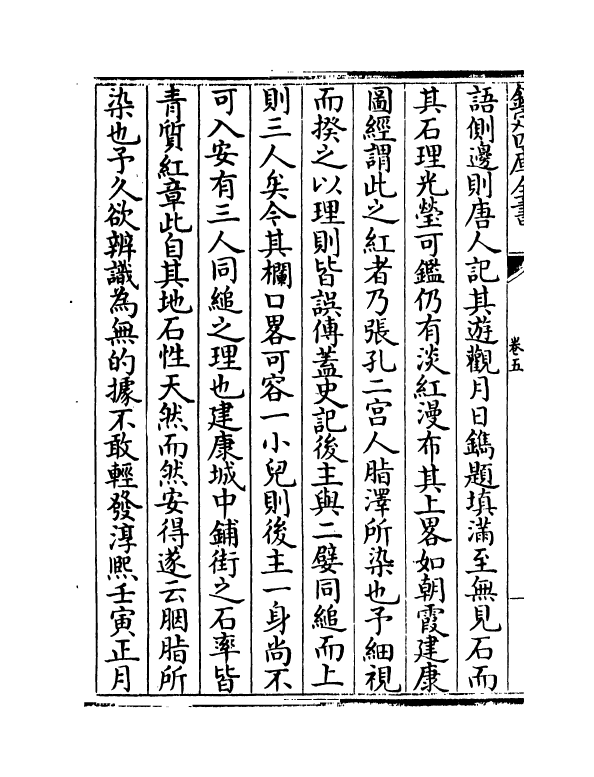 欽定四庫全書
卷五
語側邊則唐人記其遊觀月日鐫題填滿至無見石而
其石理光瑩可鑑仍有淡紅漫布其上畧如朝霞建康
圖經謂此之紅者乃張孔二宫人脂澤所染也予細視
而揆之以理則皆誤傳蓋史記後主與二嬖同縋而上
則三人矣今其欄口畧可容一小兒則後主一身尚不
可入安有三人同縋之理也建康城中鋪街之石率皆
青質紅章此自其地石性天然而然安得遂云胭脂所
染也予久欲辨識為無的據不敢輕發淳熙壬寅正月